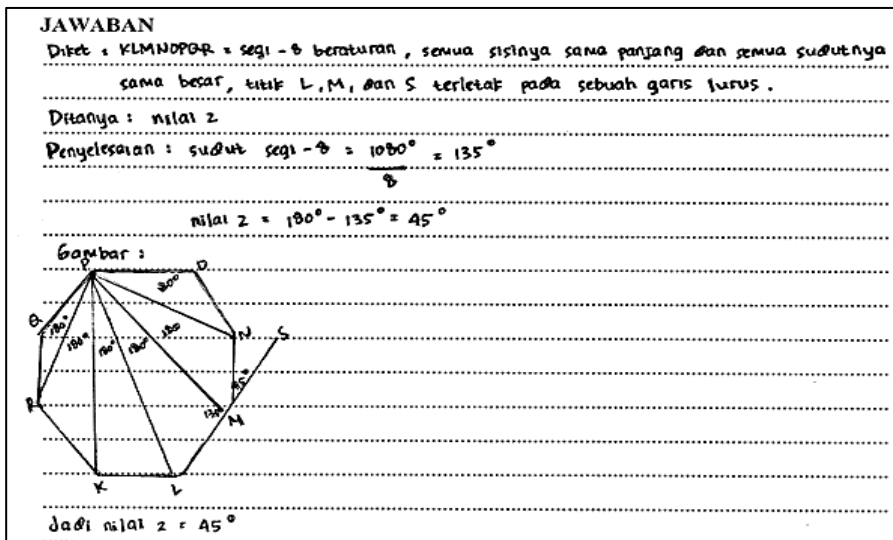 JAWABAN
Diket : KLMNOPQR = segi - 8 beraturan, semua sisinya sama panjang dan semua sudutnya
sama besar, titik L, M, dan S terletak pada sebuah garis lurus.
Ditanya : nilai z
Penyelesaian : sudut segi - 8 = 1080° = 135°
8
nilai z = 180° - 135° = 45°
Gambar :
P O
180°
Q 180° 180° 180° 180° 180 N S
45°
R 135° M
K L
Jadi nilai z = 45°